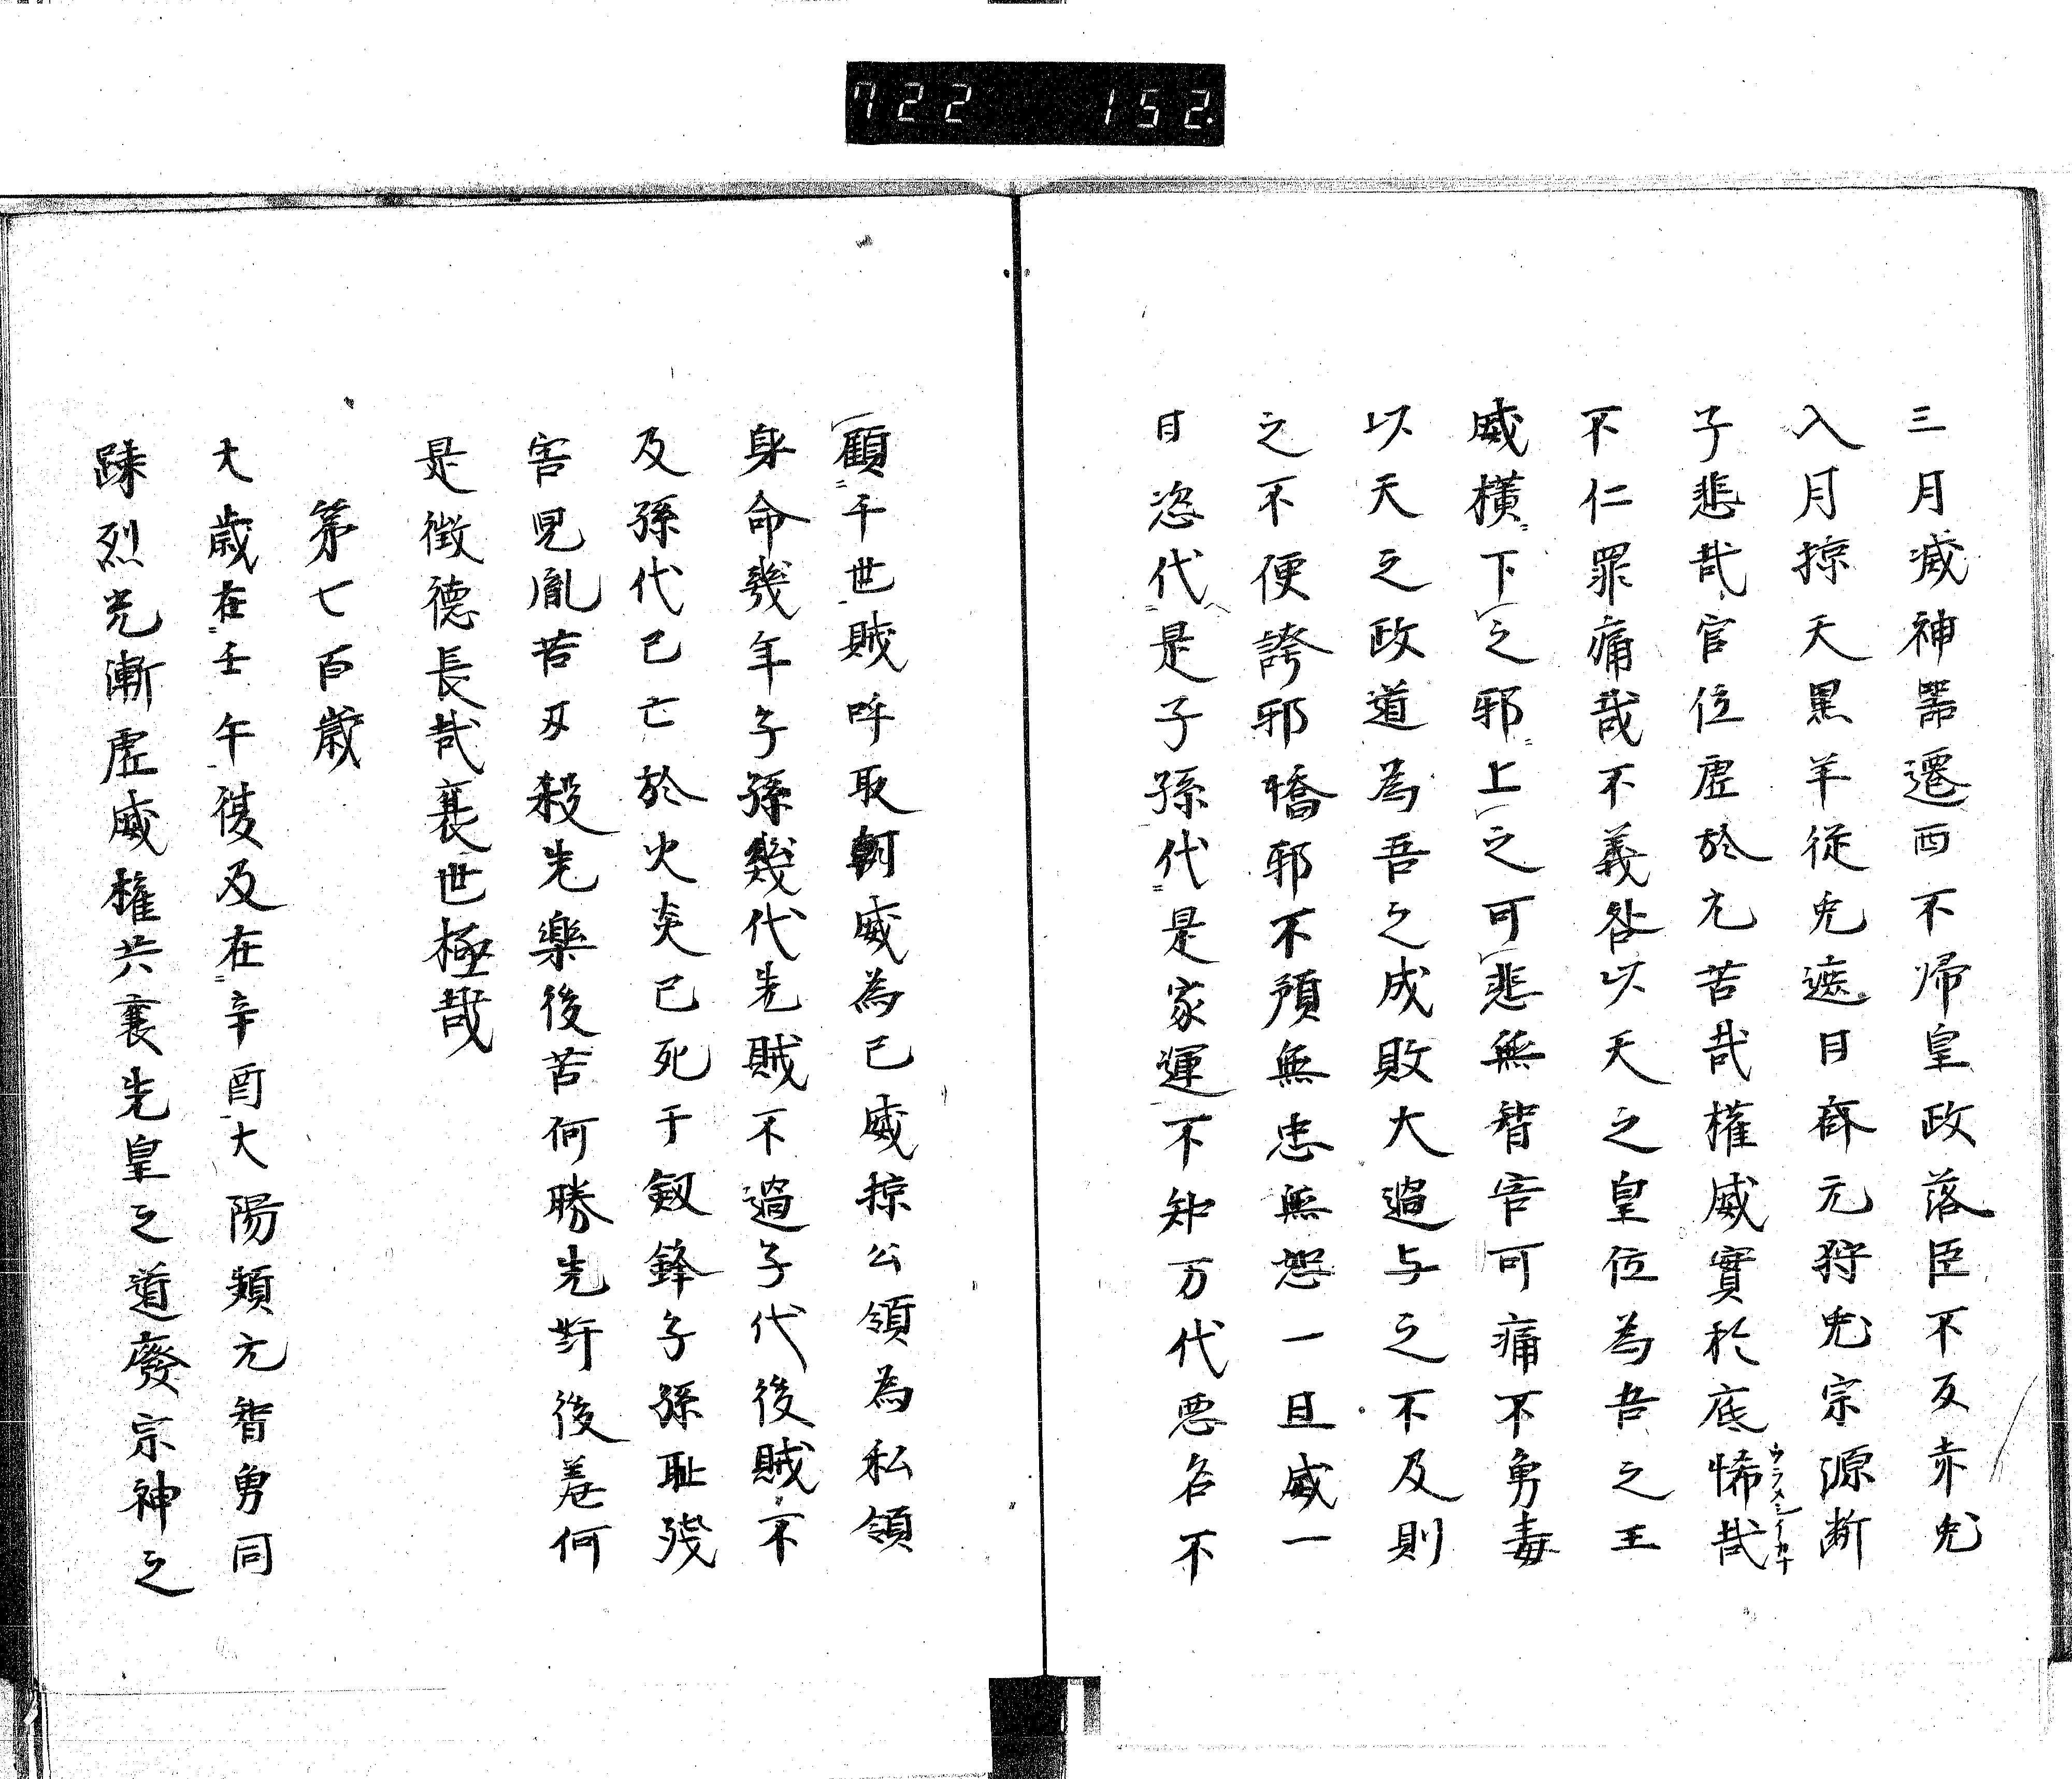 722 152
三月滅神噐遷西不帰皇政落臣不反赤兇
入月掠天黒羊従兇遮日群元狩兇宗源断
子悲哉官位虚於亢苦哉權威實於底悕哉
ウラメシイカナ
不仁罪痛哉不義咎以天之皇位為吾之王
威横下之邪上之可悲無智害可痛不勇毒
以天之政道為吾之成敗大過与之不及則
之不便誇邪憍邪不預無忠無恕一旦威一
日恣代是子孫代是家運不知万代悪名不
顧千世賊呼取朝威為己威掠公領為私領
身命幾年子孫幾代先賊不過子代後賊不
及孫代已亡於火炎已死于釼鋒子孫耻残
害児胤苦刃殺先樂後苦何勝先奸後羞何
是徴德長哉衰世極哉
第七百歳
大歳在壬午後及在辛酉大陽頬亢智勇同
踈烈光漸虚威權共衰先皇之道廢宗神之